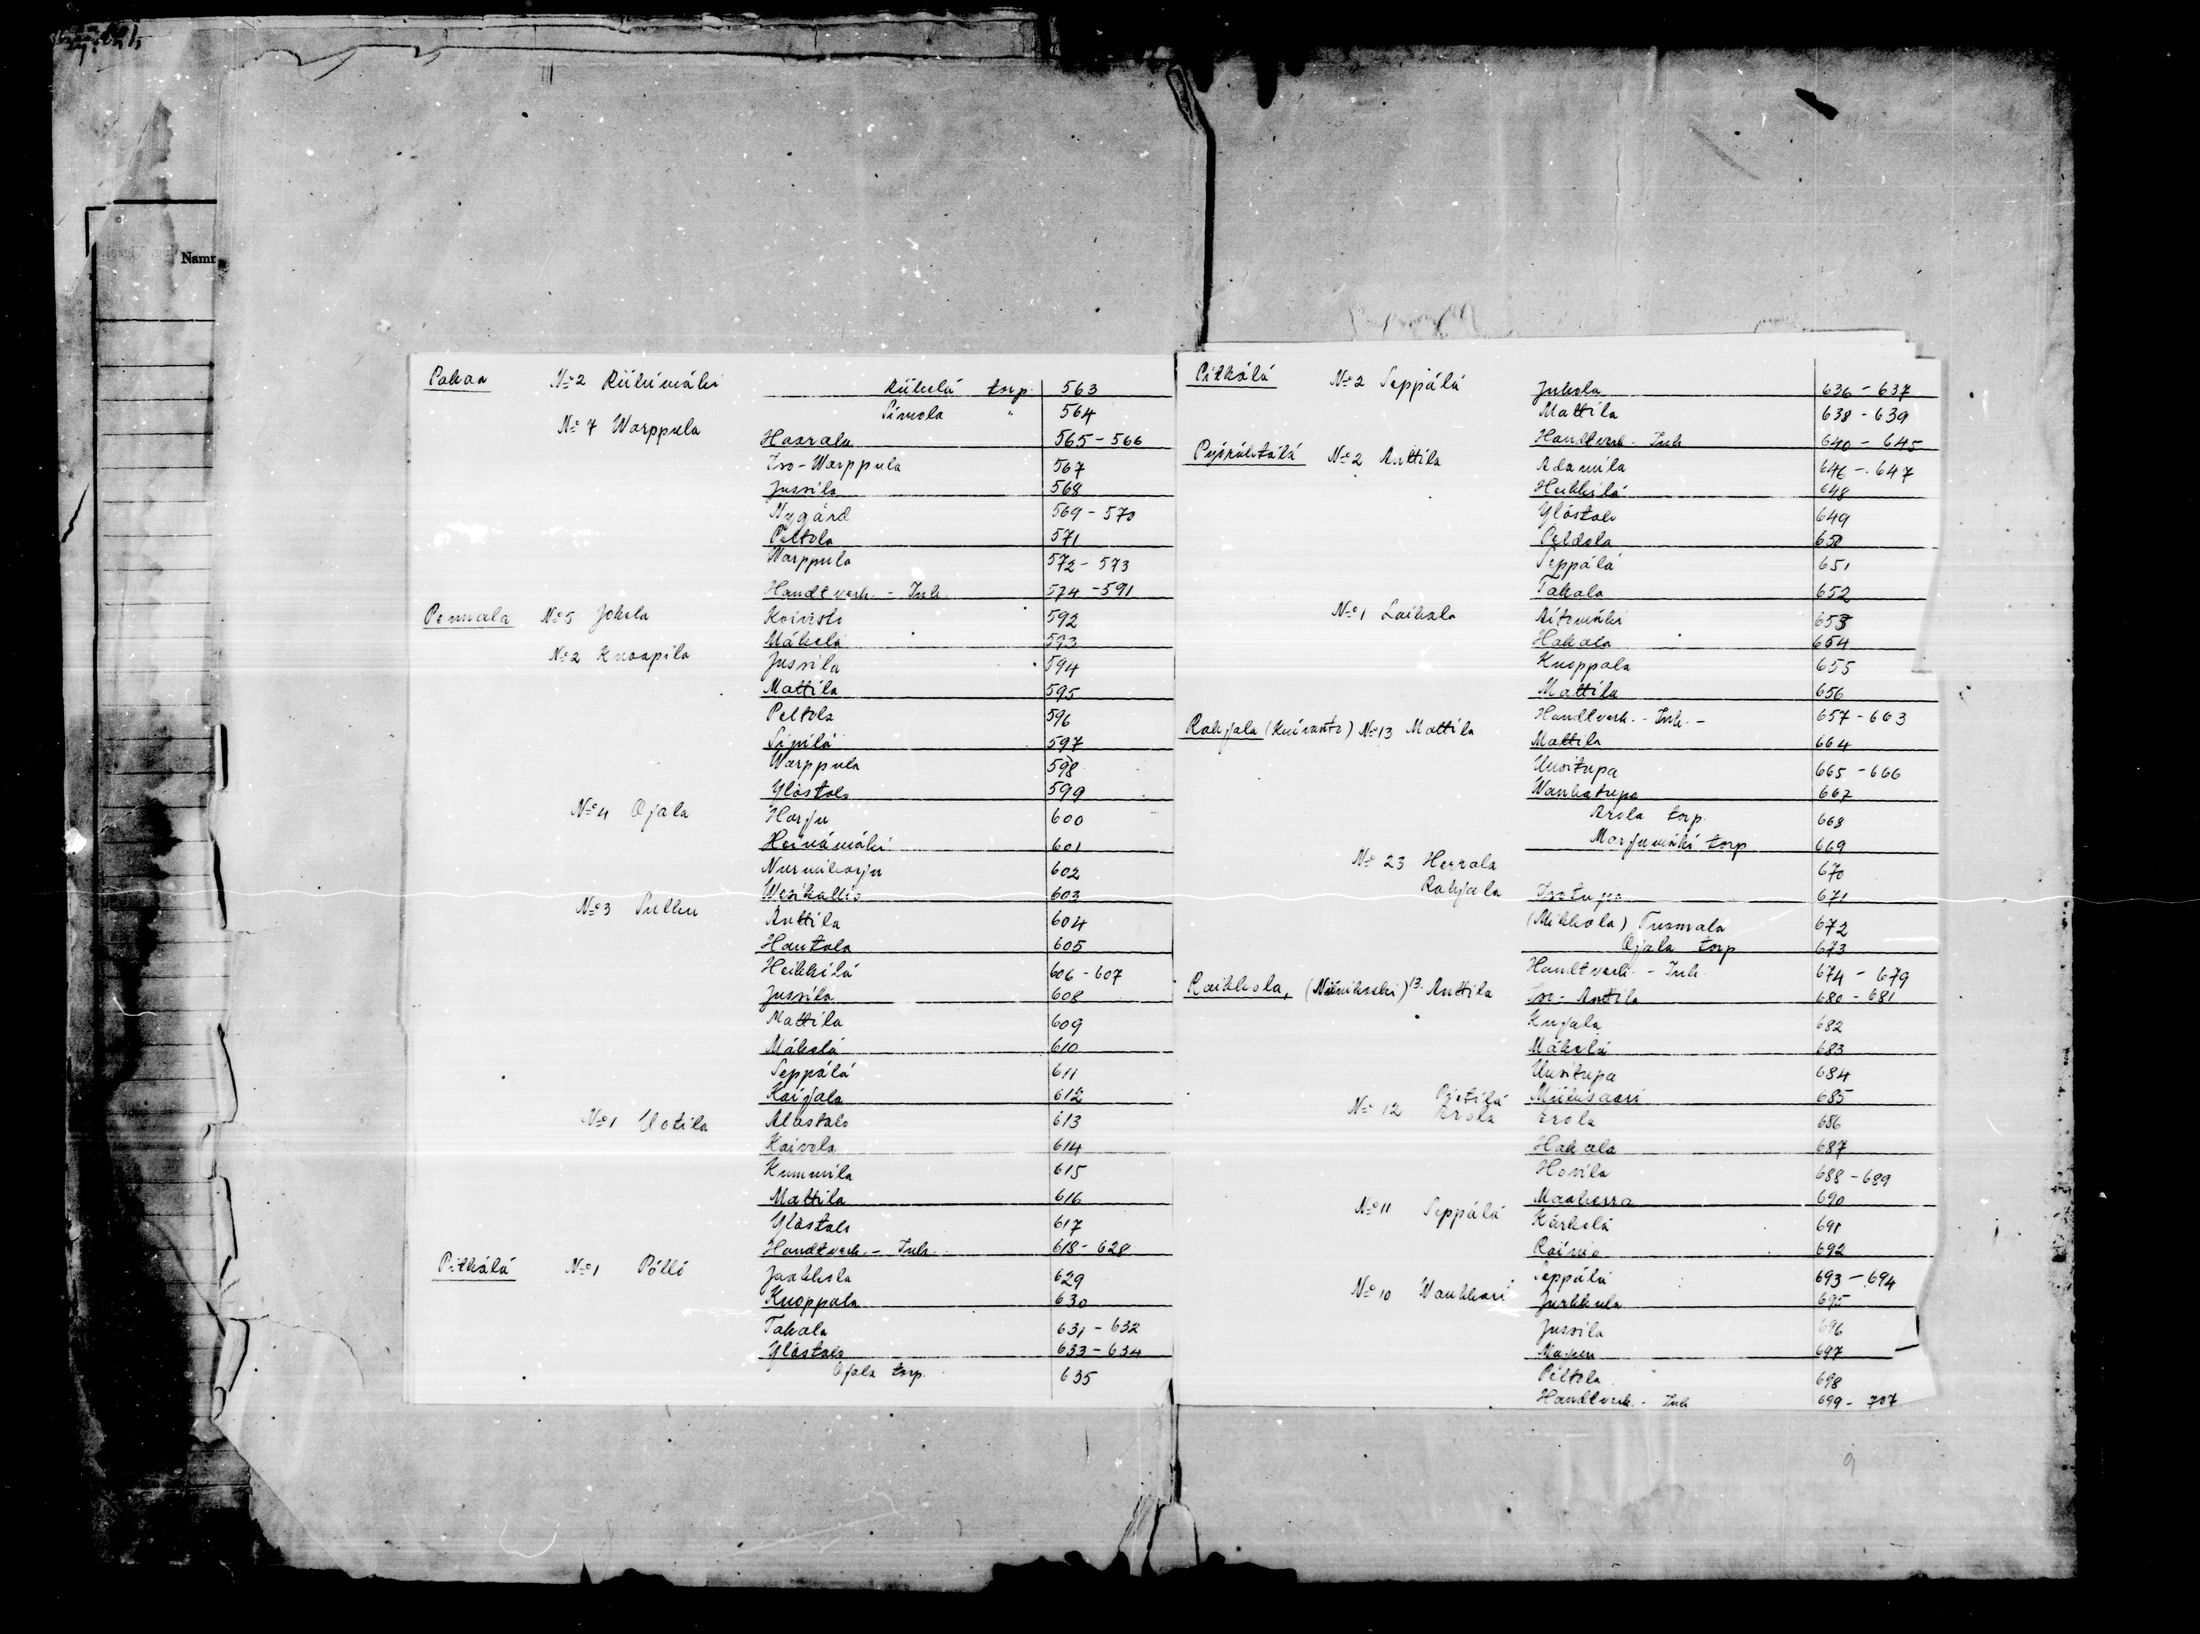 Namn
Pakaa № 2 Riihimäki Riihelä torp. 563
Simola " 564
№ 7 Warppula Haarala 565-566
Iso-Warppula 567
Jussila 568
Nygård 569-570
Peltola 571
Warppula 572-573
Handtverk. - Inh. 574-591
Pennala № 5 Jokela Koivisto 592
Mäkelä 593
№ 2 Knaapila Jussila 594
Mattila 595
Peltola 596
Sipilä 597
Warppula 598
Ylöstalo 599
№ 4 Ojala Harju 600
Heinämäki 601
Nurmiharju 602
Wesikallio 603
№ 3 Pullin Anttila 604
Hautala 605
Heikkilä 606-607
Jussila 608
Mattila 609
Mäkelä 610
Seppälä 611
Kaijala 612
№ 1 Uotila Alastalo 613
Kaivola 614
Kummila 615
Mattila 616
Ylöstalo 617
Handtverk. - Inh. 618-628
Pitkälä № 1 Pölli Jaakkola 629
Knoppala 630
Takala 631-632
Ylöstalo 633-634
Ojala torp. 635
Pitkälä № 2 Seppälä Juhola 636-637
Mattila 638-639
Handtverk. Inh 640-645
Pyörähtälä № 2 Anttila Adamila 646-647
Heikkilä 648
Ylöstalo 649
Peldola 650
Seppälä 651
Takala 652
№ 1 Laihala Aitomäki 653
Hakala 654
Knoppala 655
Mattila 656
Handtverk. - Inh. - 657-663
Rahjala (Kuivanto) № 13 Mattila Mattila 664
Uusitupa 665-666
Wanhatupa 667
Arola torp. 668
Marjumäki torp 669
№ 23 Herrala 670
Rahjala Isotupa 671
(Mikkola) Tuomala 672
Ojala torp 673
Handtverk. - Inh. 674-679
Raikkola, (Niinikoski) 13. Anttila Iso-Anttila 680-681
Kujala 682
Mäkelä 683
Uusitupa 684
Pietilä Miilusaari 685
№ 12 Erola Erola 686
Hakala 687
Hosila 688-689
Maaherra 690
№ 11 Seppälä Kärkelä 691
Raimo 692
Seppälä 693-694
№ 10 Wanhkari Jurkkula 695
Jussila 696
697
Peltola 698
Handtverk. - Inh 699-707
9